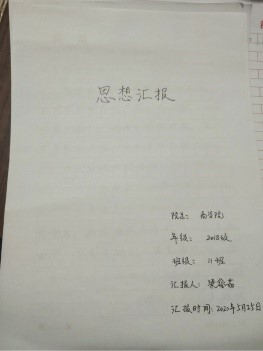 思想汇报
院系: 商学院
年级: 2018级
班级: 11班
汇报人:
汇报时间: 2020年5月25日